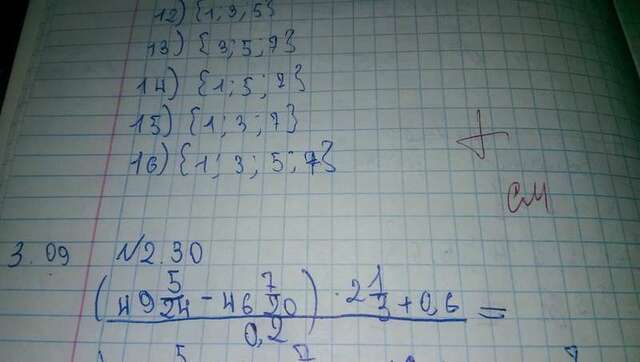 12) {1; 3; 5}
13) {3; 5; 7}
14) {1; 5; 7}
15) {1; 3; 7}
16) {1; 3; 5; 7}
см
3.09 №2.30
(49 5/24 - 46 7/20) · 2 1/3 + 0,6 =
0,2
5 7